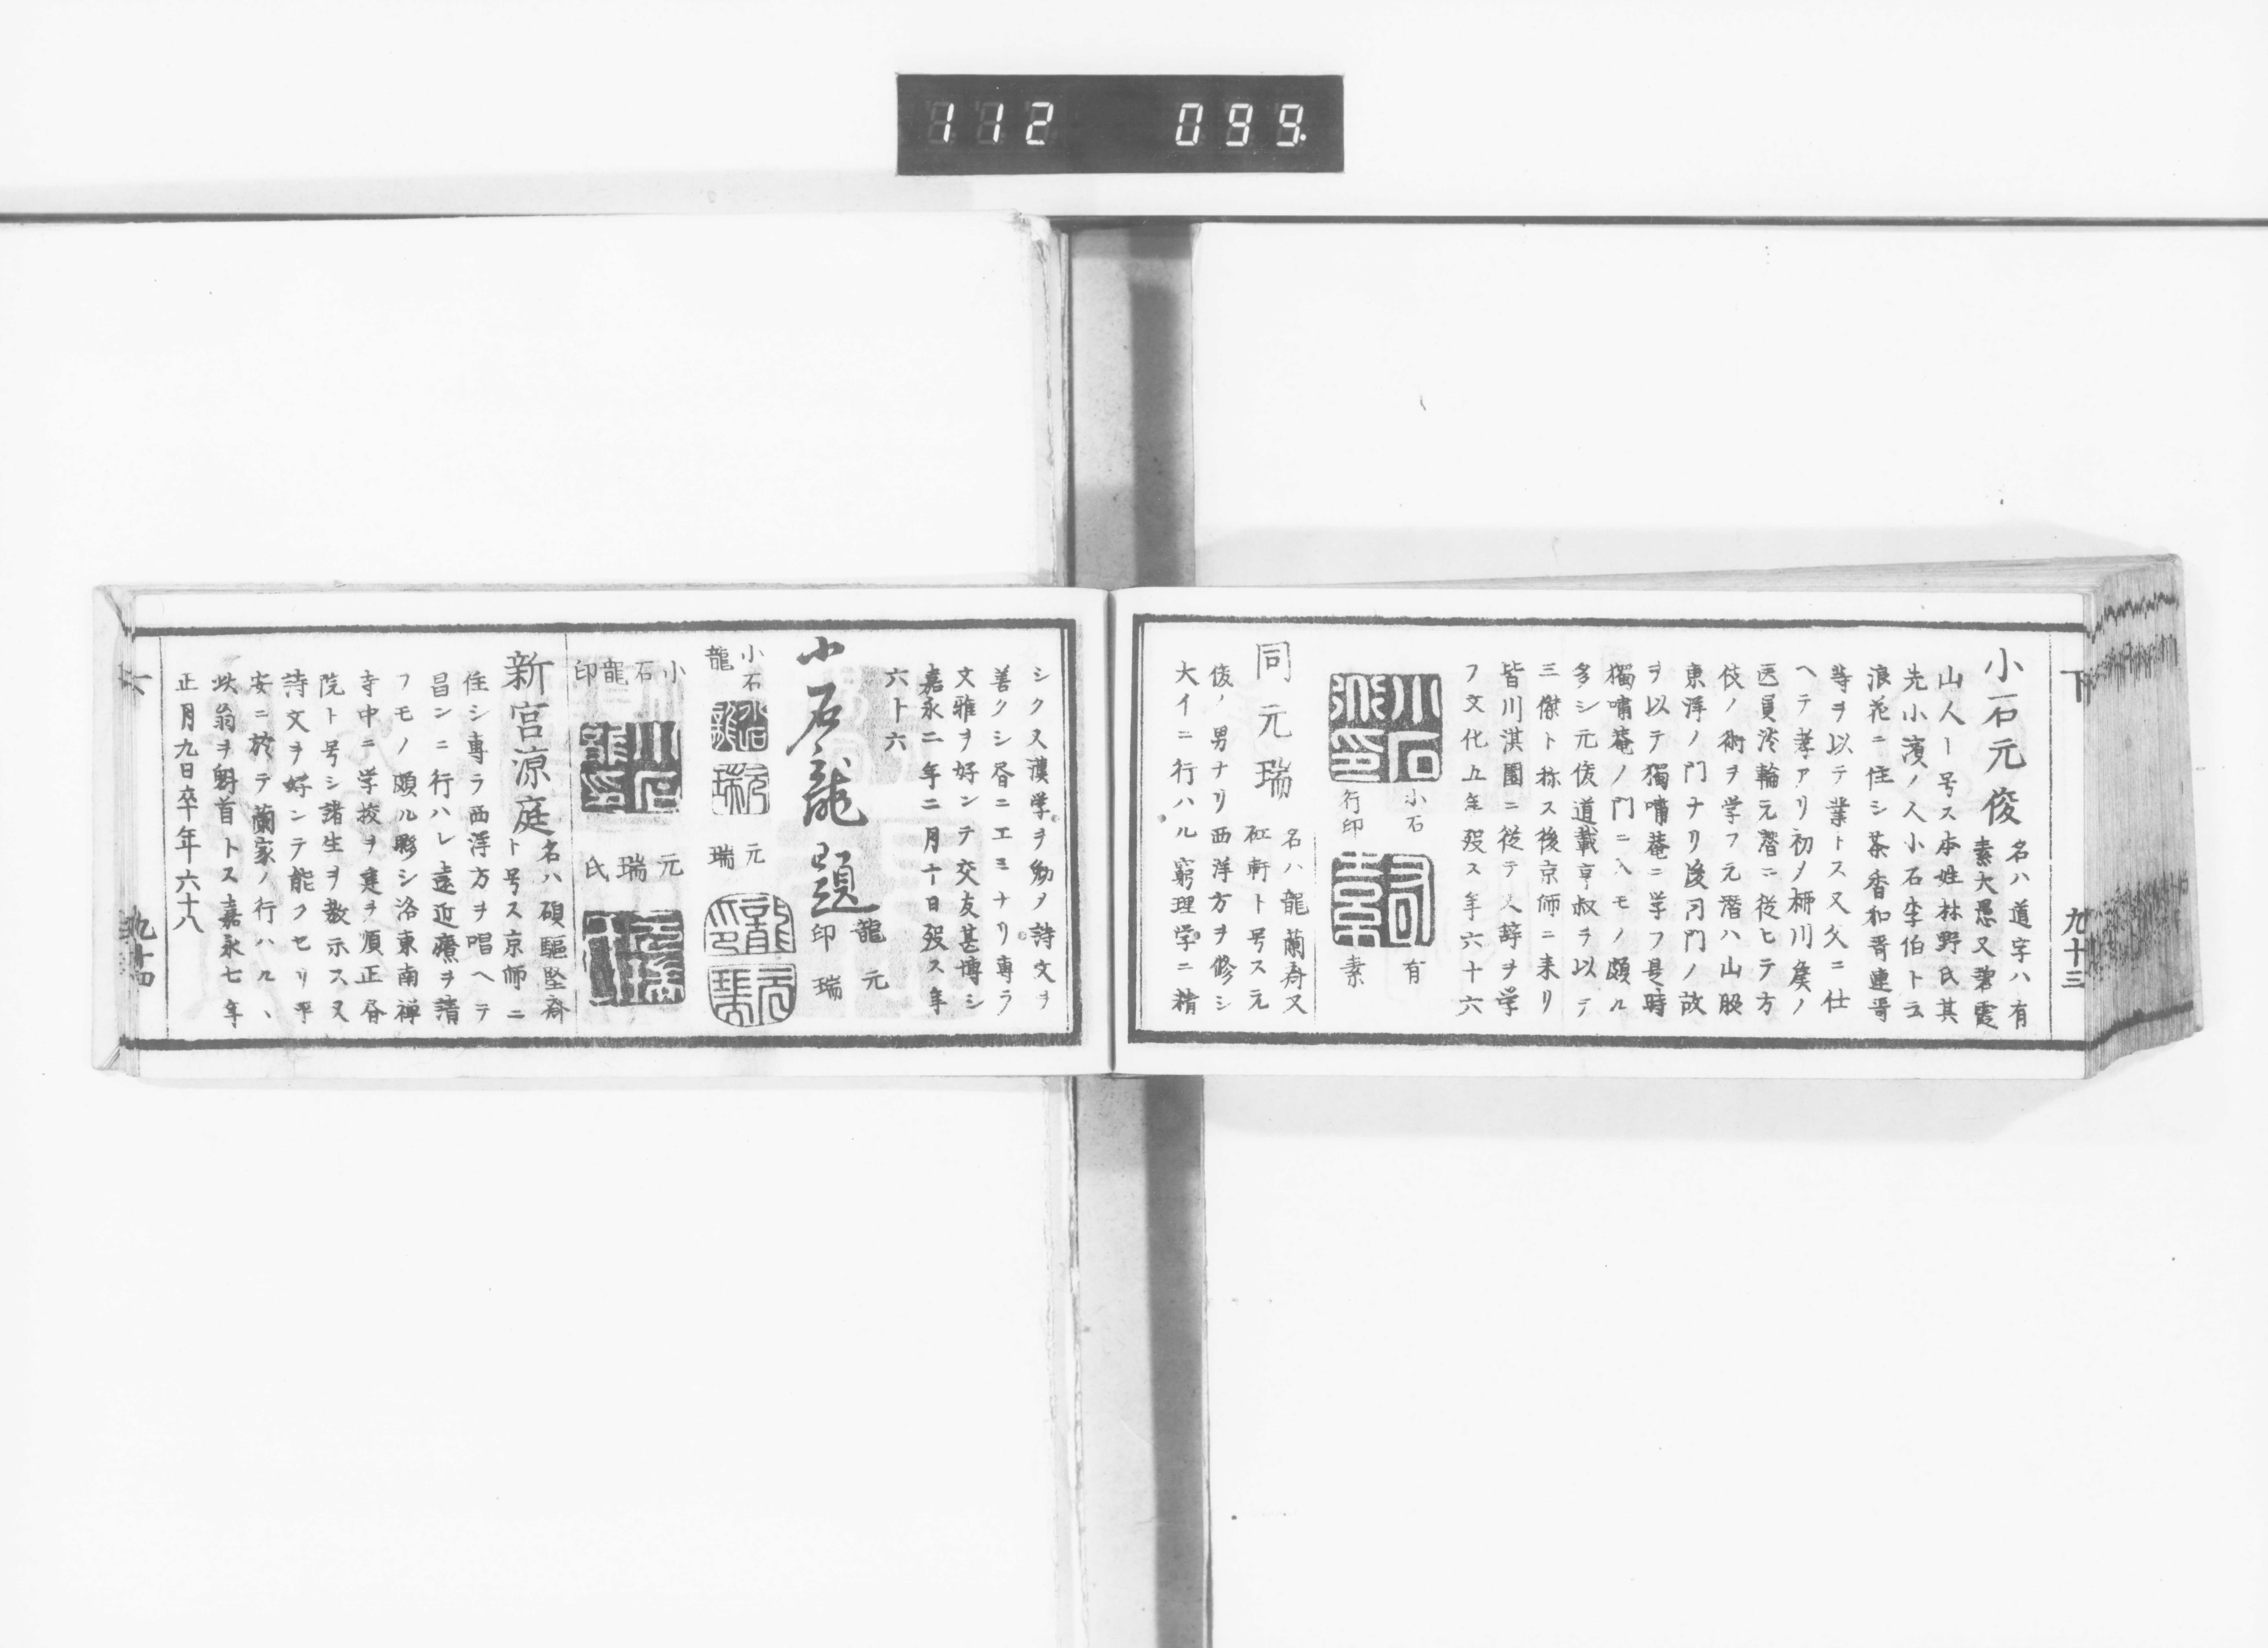 112 099
下
九十三
小石元俊
名ハ道字ハ有
素大愚又碧霞
山人ト号ス本姓林野氏其
先小濱ノ人小石李伯ト云
浪花ニ住シ茶香和哥連哥
等ヲ以テ業トス又父ニ仕
ヘテ孝アリ初メ柳川矦ノ
医員淡輪元潜ニ従ヒテ方
伎ノ術ヲ学フ元潜ハ山脇
東洋ノ門ナリ後同門ノ故
ヲ以テ獨嘯菴ニ学フ是時
獨嘯菴ノ門ニ入モノ頗ル
多シ元俊道載亨叔ヲ以テ
三傑ト称ス後京師ニ来リ
皆川淇園ニ従テ文辞ヲ学
フ文化五年殁ス年六十六
小石
行印
有
素
同元瑞
名ハ龍蘭斎又
秖軒ト号ス元
俊ノ男ナリ西洋方ヲ修シ
大イニ行ハル窮理学ニ精
シクス漢学ヲ勉メ詩文ヲ
善クシ昏ニエミナリ専ラ
文雅ヲ好ンテ交友甚博シ
嘉永二年二月十日殁ス年
六十六
小石龍題
龍元
印瑞
小石
龍
元
瑞
小石龍印
元瑞氏
新宮源庭
名ハ碩驅堅斎
ト号ス京師ニ
住シ専ラ西洋方ヲ唱ヘテ
昌ンニ行ハレ遠近療ヲ請
フモノ頗ル夥シ洛東南禅
寺中ニ学校ヲ建ヲ順正昏
院ト号シ諸生ヲ教示ス又
詩文ヲ好ンテ能クセリ平
安ニ於テ蘭家ノ行ハル、
此翁ヲ魁首トス嘉永七年
正月九日卒年六十八
九十四